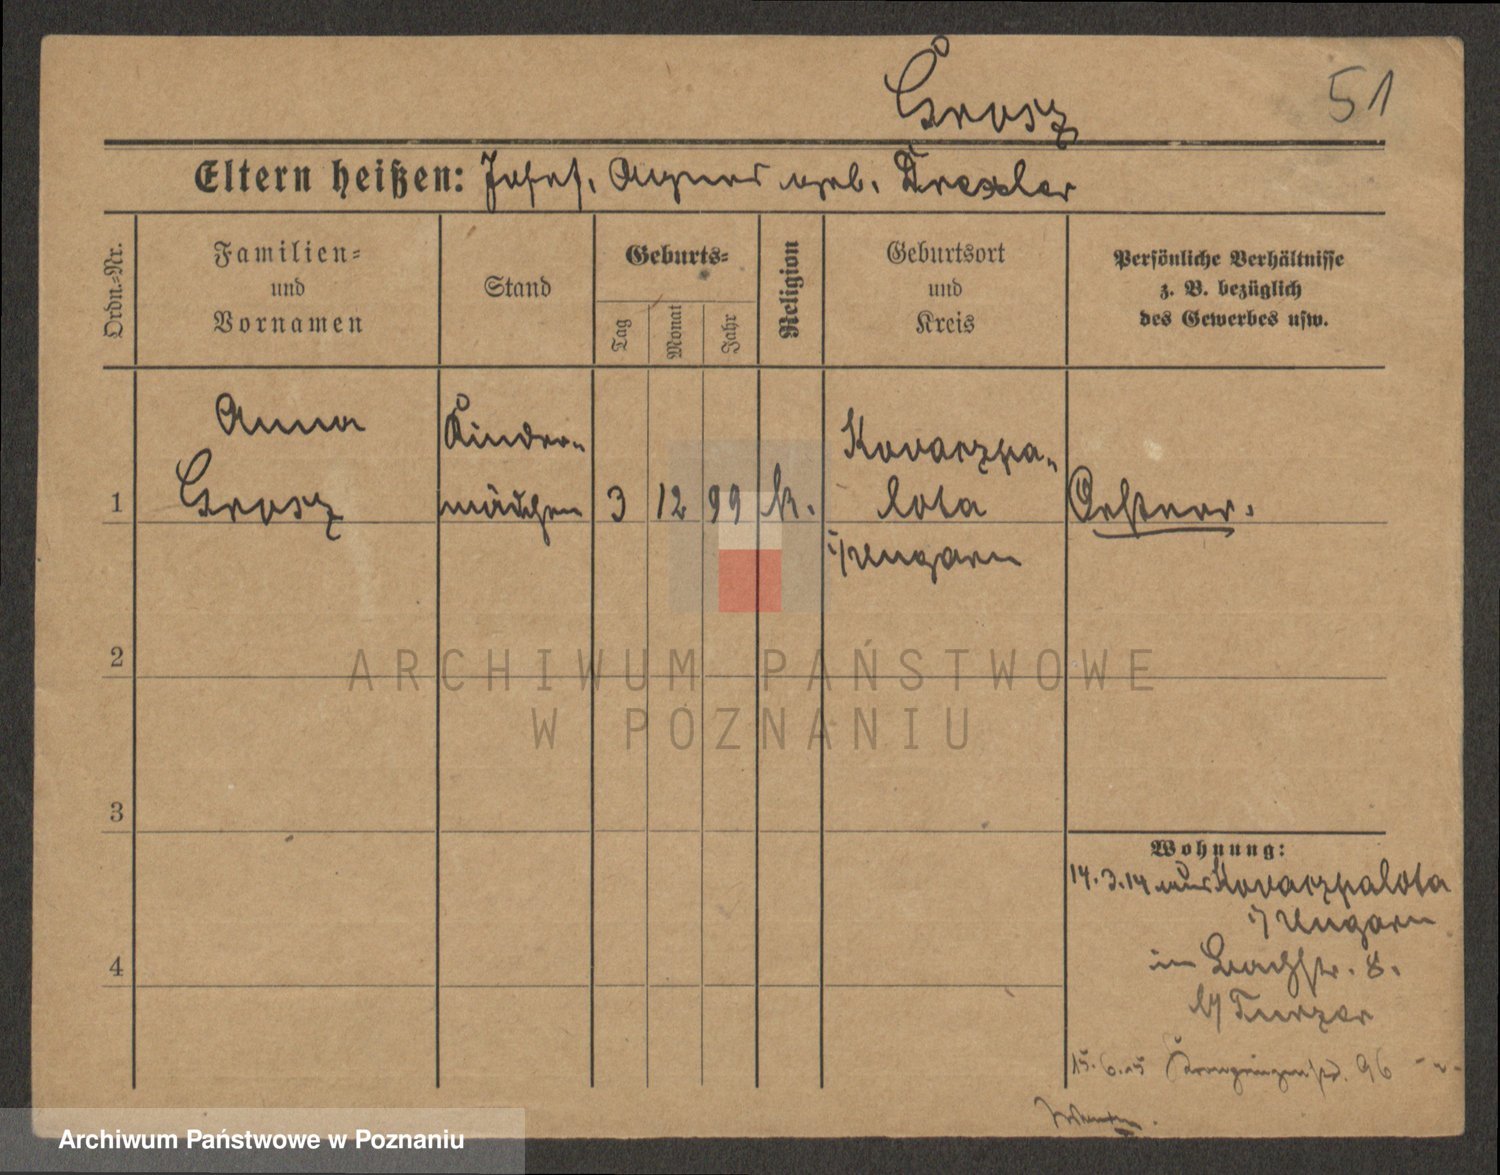 Grosz
51
Eltern heißen: Josef. Agnes geb. Drexler
Ordn.-Nr.
Familien-
und
Vornamen
Stand
Geburts-
Tag
Monat
Jahr
Religion
Geburtsort
und
Kreis
Persönliche Verhältnisse
z. B. bezüglich
des Gewerbes usw.
1
Anna
Grosz
Kinder-
mädchen
3 12 99 k.
Kovarzpa-
lota
i/Ungarn
2
3
4
Wohnung:
14.3.14 aus Kovarzpalota
i/Ungarn
in Bachstr. 8.
b/ Turzer
15.6.15 Kronprinzenstr. 96
ARCHIWUM PAŃSTWOWE
W POZNANIU
Archiwum Państwowe w Poznaniu